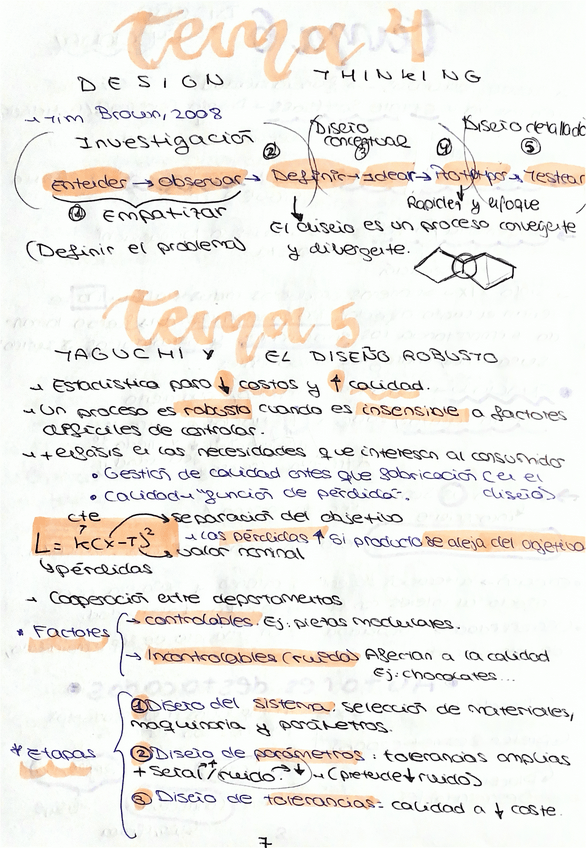 tema 4
DESIGN THINKING
→ Tim Brown, 2008
Investigación
Diseño conceptual
Diseño detallado
② ③ ④ ⑤
Entender → Observar → Definir → Idear → Prototipar → Testear
① Empatizar
Rapidez y enfoque
(Definir el problema)
El diseño es un proceso convergente
y divergente.
tema 5
TAGUCHI Y EL DISEÑO ROBUSTO
→ Estadística para ↓ costos y ↑ calidad.
→ Un proceso es robusto cuando es insensible a factores
difíciles de controlar.
→ + énfasis en las necesidades que interesan al consumidor
• Gestión de calidad antes que fabricación (en el
diseño)
• Calidad → "función de pérdida".
cte
→ separación del objetivo
L = k(x-T)²
→ Las pérdidas ↑ si producto se aleja del objetivo
→ valor nominal
↳ pérdidas
→ Cooperación entre departamentos
* Factores
→ controlables. Ej: piezas modulares.
→ Incontrolables (ruido) Afectan a la calidad
Ej: chocolates...
* Etapas
① Diseño del sistema: selección de materiales,
maquinaria y parámetros.
② Diseño de parámetros: tolerancias amplias
+ señal ↑ / ruido ↓ → (pretende ↓ ruido)
③ Diseño de tolerancias: calidad a ↓ coste.
7